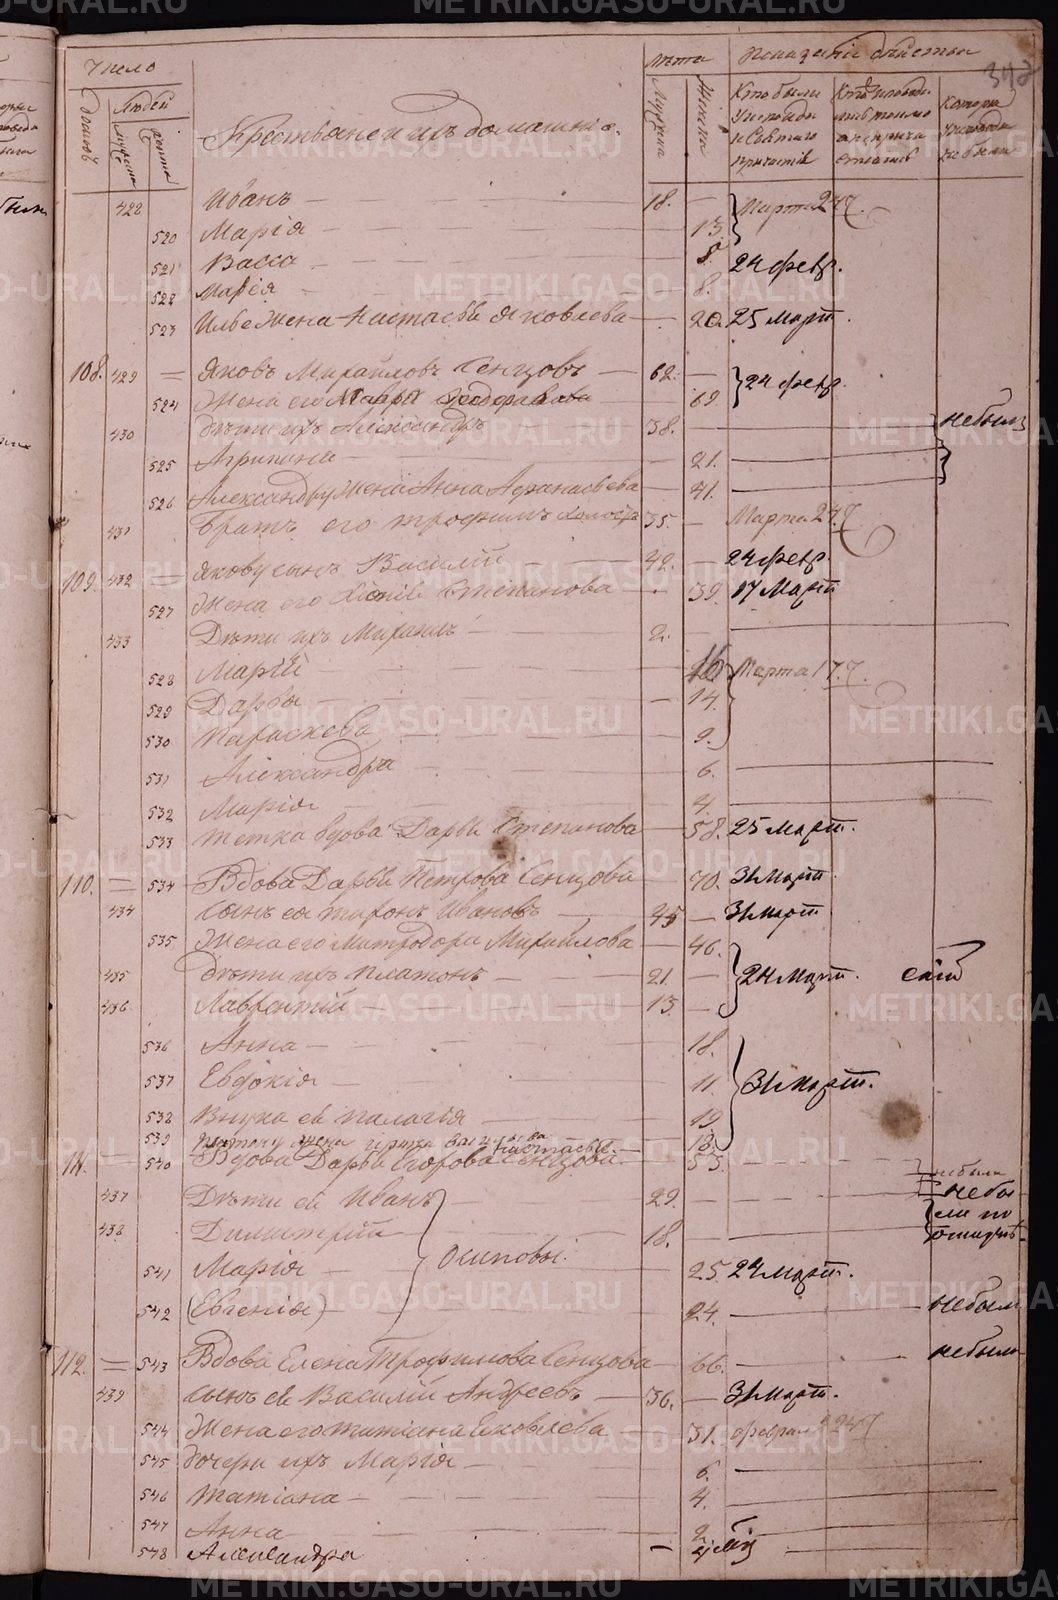 Число
Лѣта
Показаніе бытья
342
домовъ
Людей
мужска
женска
Крестьяне и ихъ домашніе.
Мужска
Женска
Кто были
у исповѣди
и Святаго
причастія
428 Иванъ 18. Марта 24
520 Марія 13.
521 Васса 8. 24 февр.
522 Марія 8.
523 Илье жена Настасья Яковлева 20. 25 март.
108. 429 Яковъ Михайловъ Сенцовъ 62. 24 февр.
524 Жена его Мавра Ѳеодорова 69.
430 Дѣти ихъ Александръ 38. небыли
525 Агрипина 21.
526 Александру жена Анна Афанасьева 41.
431 Братъ его Трофимъ холостъ 35. Марта 24
109. 432 Якову сынъ Василій 42. 24 февр.
527 Жена его Степанова 39. 17 Март
433 Дѣти ихъ Михаилъ 2.
528 Марія 16 Марта 17
529 Дарья 14.
530 Параскева 9.
531 Александра 6.
532 Марія 4.
533 Тетка вдова Дарья Степанова 58. 25 март.
110. 534 Вдова Дарья Петрова Сенцова 70. 31 март
434 Сынъ ея Миронъ Ивановъ 45 31 март.
535 Жена его Митродора Михайлова 46.
435 Дѣти ихъ Платонъ 21. 24 март.
436 Лаврентій 13.
536 Анна 18.
537 Евдокія 11. 31 март.
538 Внука ея Палагія 19.
539 жена Настасья 18.
111. 540 Вдова Дарья Егорова Сенцова. 53. небыли
437 Дѣти ея Иванъ 29. небы-
438 Димитрій 18. ли по
Осиповы.
541 Марія 25. 24 март.
542 (Евгенія) 24. небыли
112. 543 Вдова Елена Трофимова Сенцова 66. небыли
439 Сынъ ея Василій Андреевъ 36. 31 март.
544 Жена его Татіана Яковлева 31. февраля 24
545 Дочери ихъ Марія 6.
546 Татіана 4.
547 Анна 2.
548 Александра
METRIKI.GASO-URAL.RU